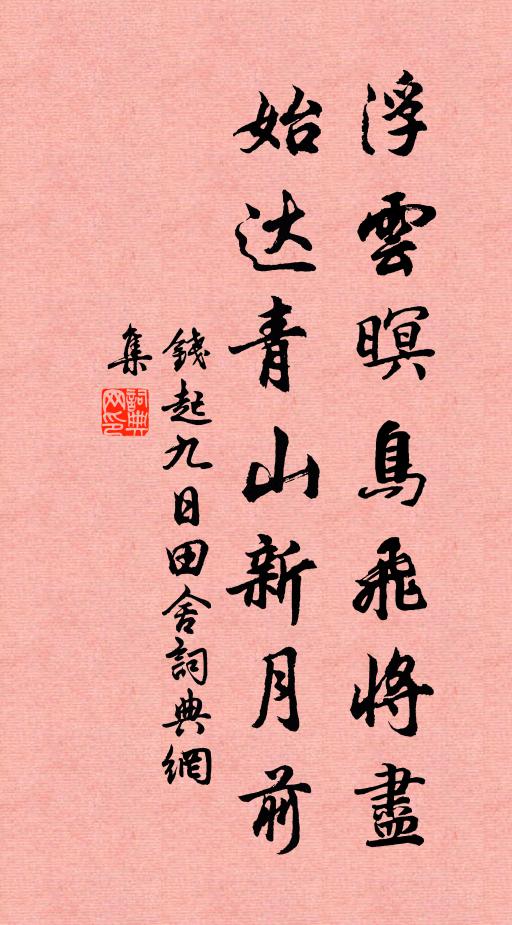 浮雲暝鳥飛將盡
始达青山新月前
錢起九日田舍詞典網
集
詞典
网印